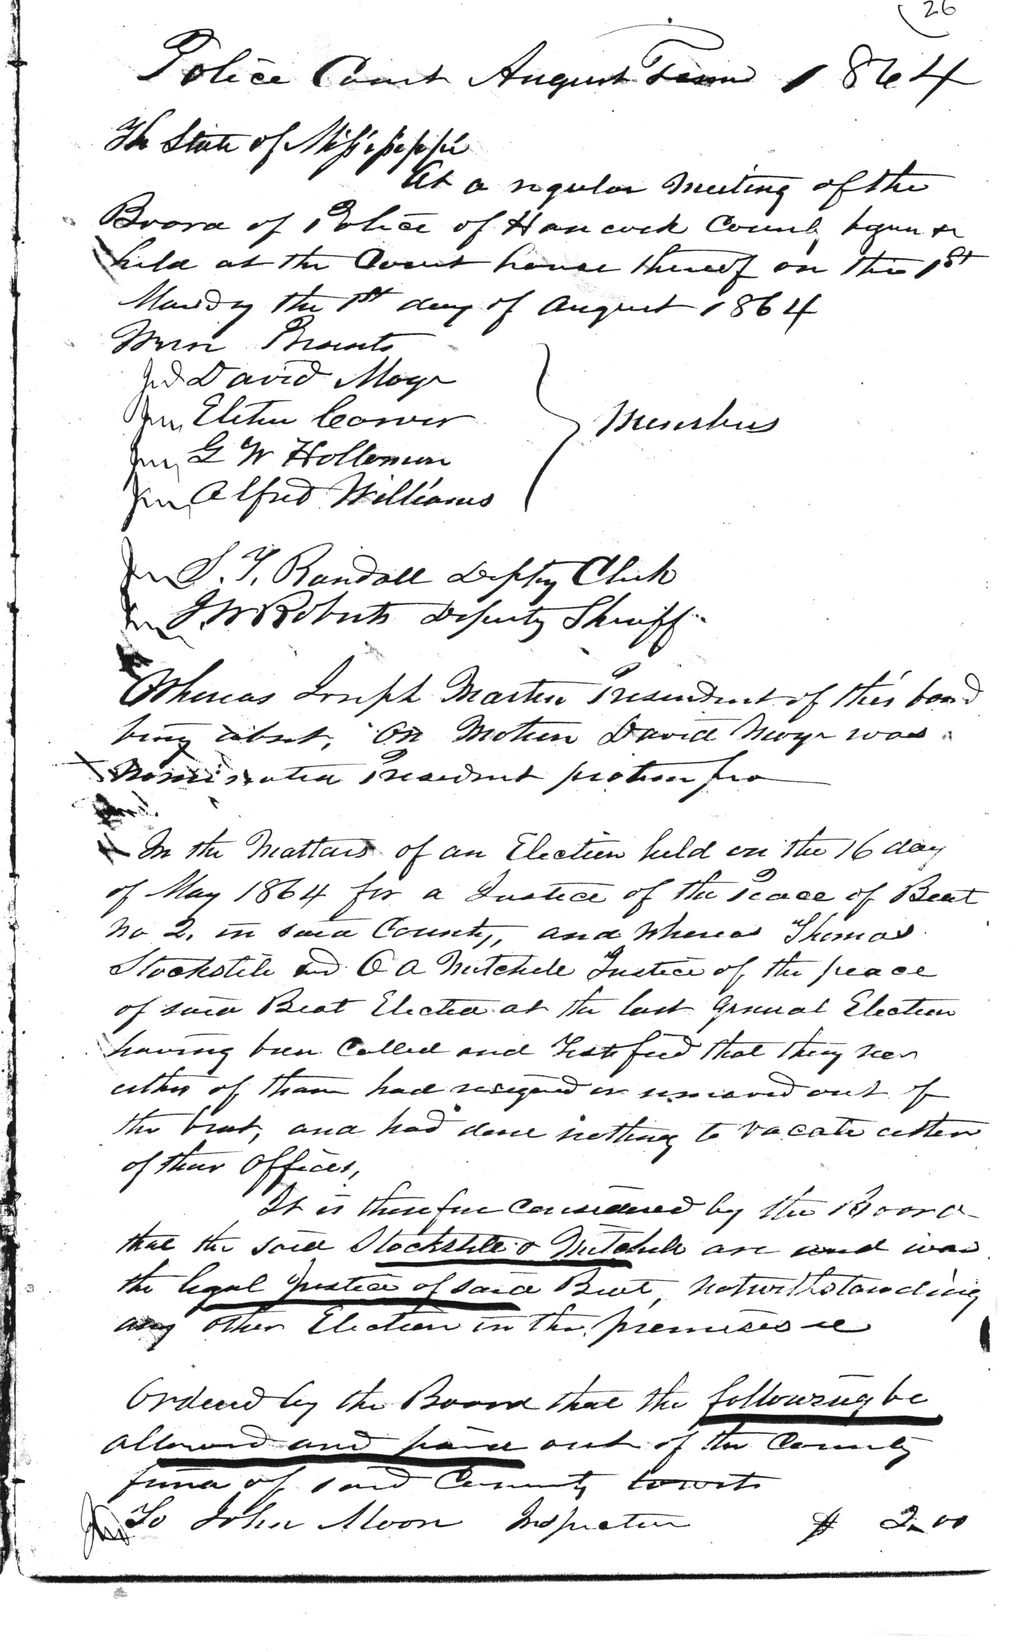 26
Police Court August Term 1864
The State of Mississippi
At a regular Meeting of the
Board of Police of Hancock County begun &
held at the Court house thereof on the 1st
Monday the 1st day of August 1864
Were Presents
David Moye
Carver
G W Holleman
Members
Alfred Williams
S. T. Randall Depty Clerk
J. W Roberts Deputy Sheriff
Whereas Joseph Martin President of this board
being absent, On Motion David Moye was
nominated President
In the Matters of an Election held on the 16 day
of May 1864 for a Justice of the Peace of Beat
No 2, in said County, and whereas Thomas
Stockstile and O A Mitchell Justice of the peace
of said Beat Elected at the last general Election
having been Called and Testified that they
either of them had resigned or moved out of
the beat, and had done nothing to vacate either
of their offices,
It is therefore considered by the Board
that the said Stockstile & Mitchell are and was
the legal Justice of said Beat, notwithstanding
any other Election in the premises
Ordered by the Board that the following be
allowed and paid out of the County
fund of said County towit
To John Moon Inspector $ 2.00